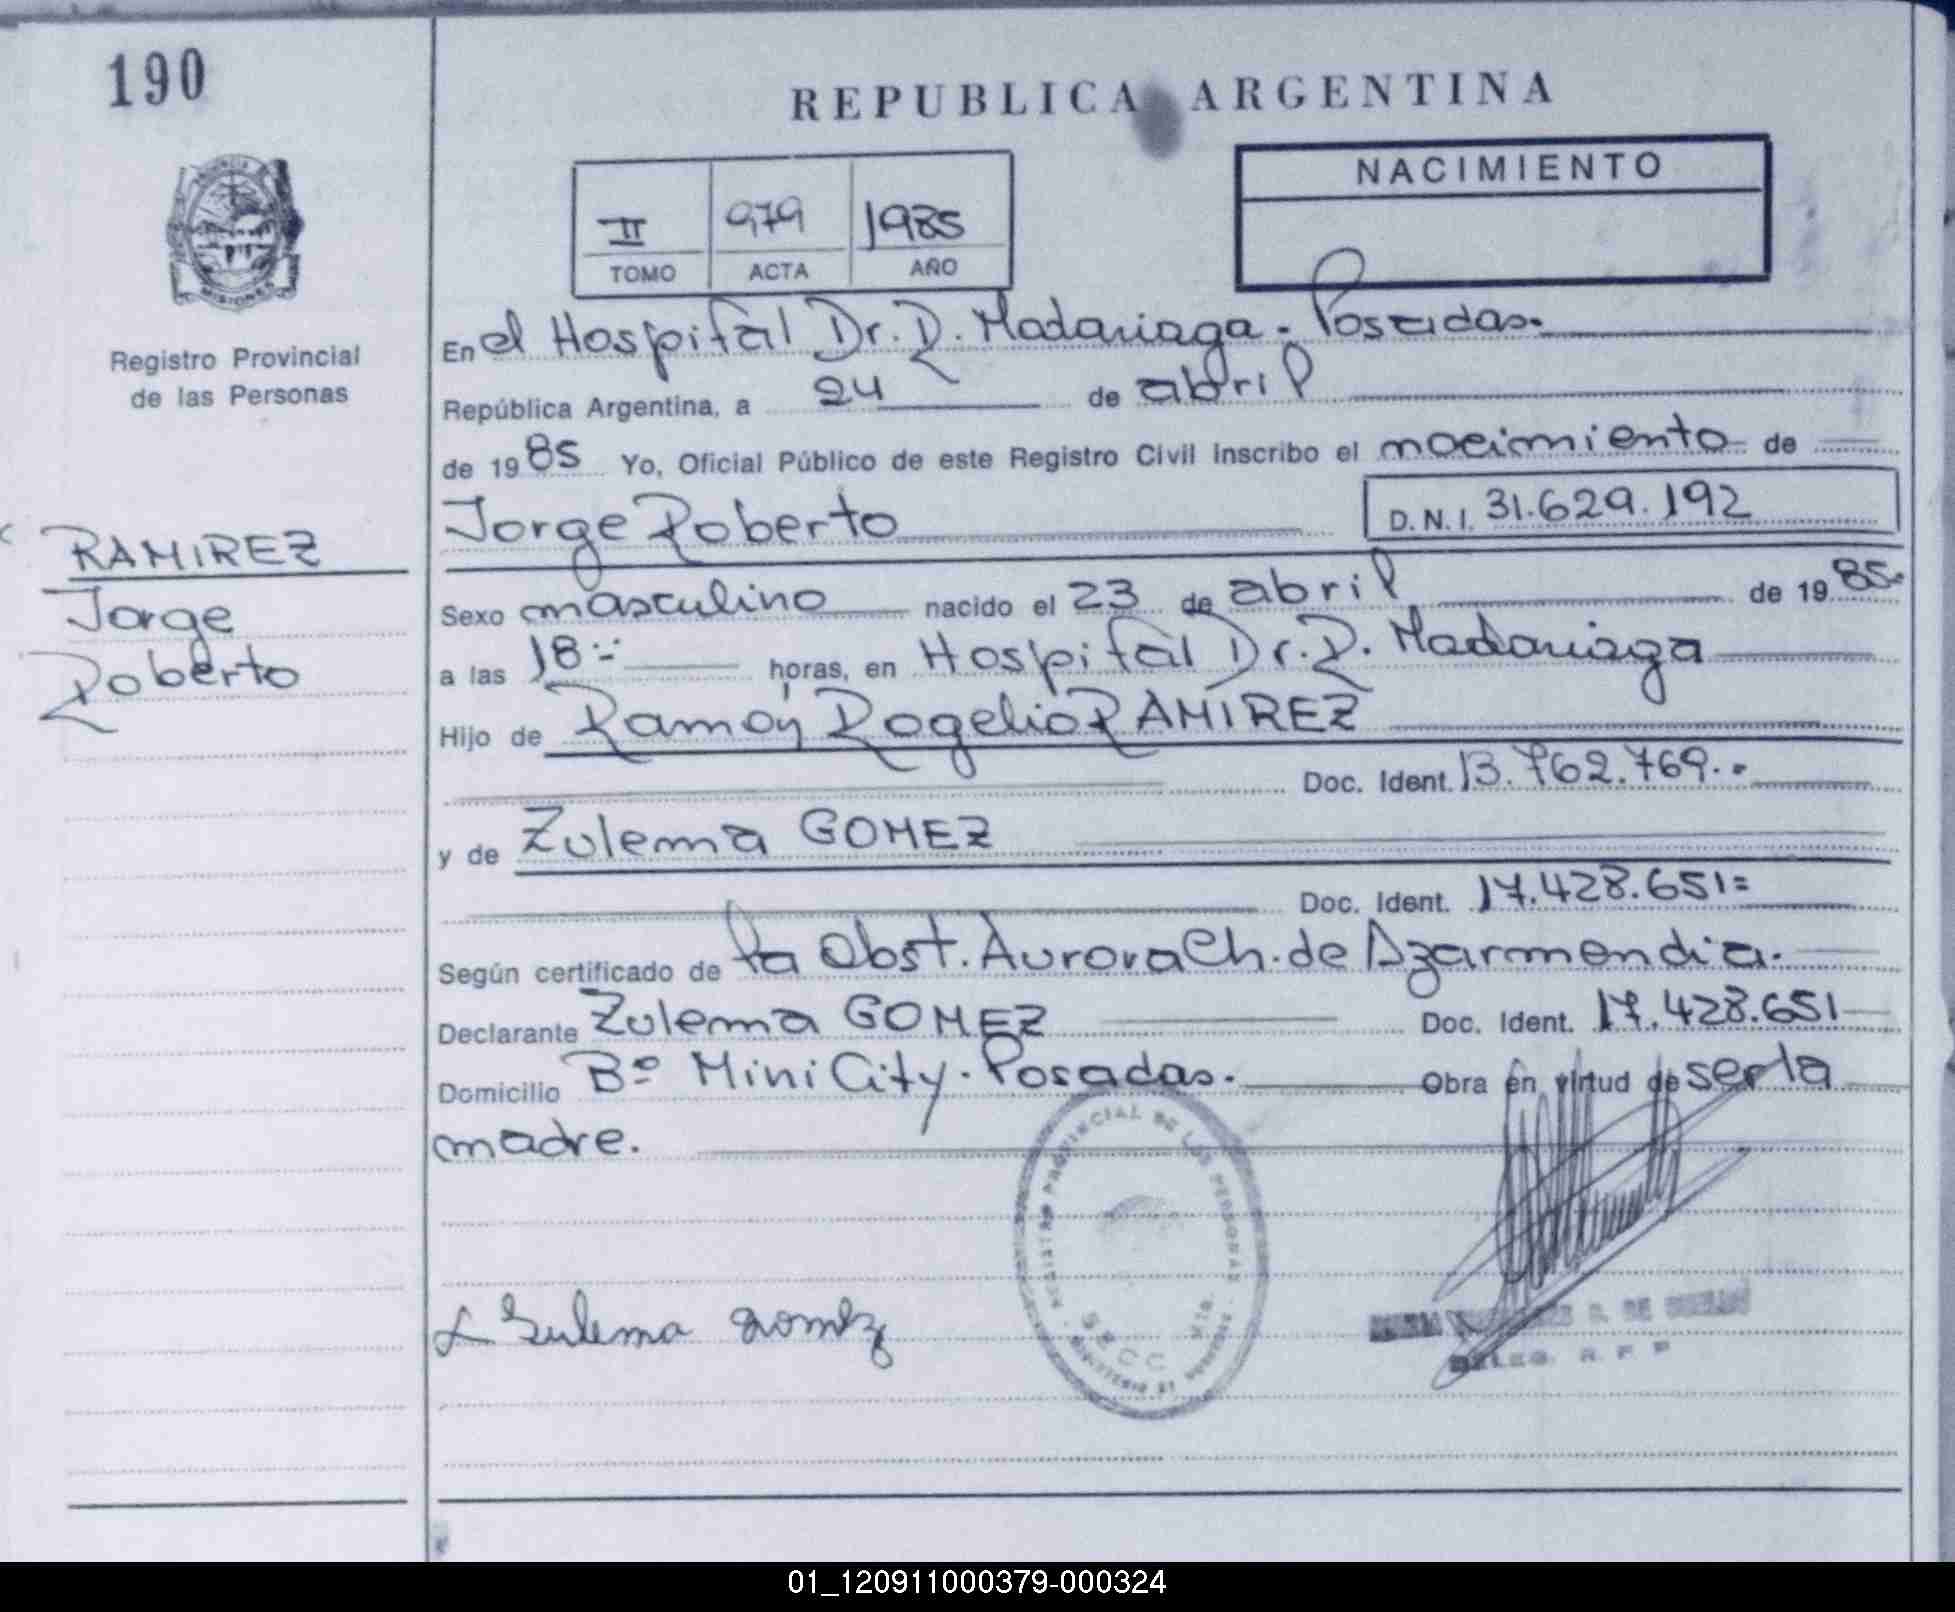 190
REPUBLICA ARGENTINA
PROVINCIA
MISIONES
Registro Provincial
de las Personas
II 979 1985
TOMO ACTA AÑO
NACIMIENTO
En el Hospital Dr. R. Madariaga - Posadas.
República Argentina, a 24 de abril
de 1985 Yo, Oficial Público de este Registro Civil inscribo el nacimiento de
Jorge Roberto D.N.I. 31.629.192
RAMIREZ
Jorge
Roberto
Sexo masculino nacido el 23 de abril de 1985.
a las 18:- horas, en Hospital Dr. R. Madariaga
Hijo de Ramón Rogelio RAMIREZ
Doc. Ident. 13.762.769.-
y de Zulema GOMEZ
Doc. Ident. 17.428.651=
Según certificado de la Obst. Aurora Ch. de Azarmendia.
Declarante Zulema GOMEZ Doc. Ident. 17.428.651
Domicilio Bº Mini City. Posadas. Obra en virtud de ser la
madre.
REGISTRO PROVINCIAL DE LAS PERSONAS
SECC
MINISTERIO DE GOBIERNO
Zulema Gomez
DELEG. R. P. P
01_120911000379-000324